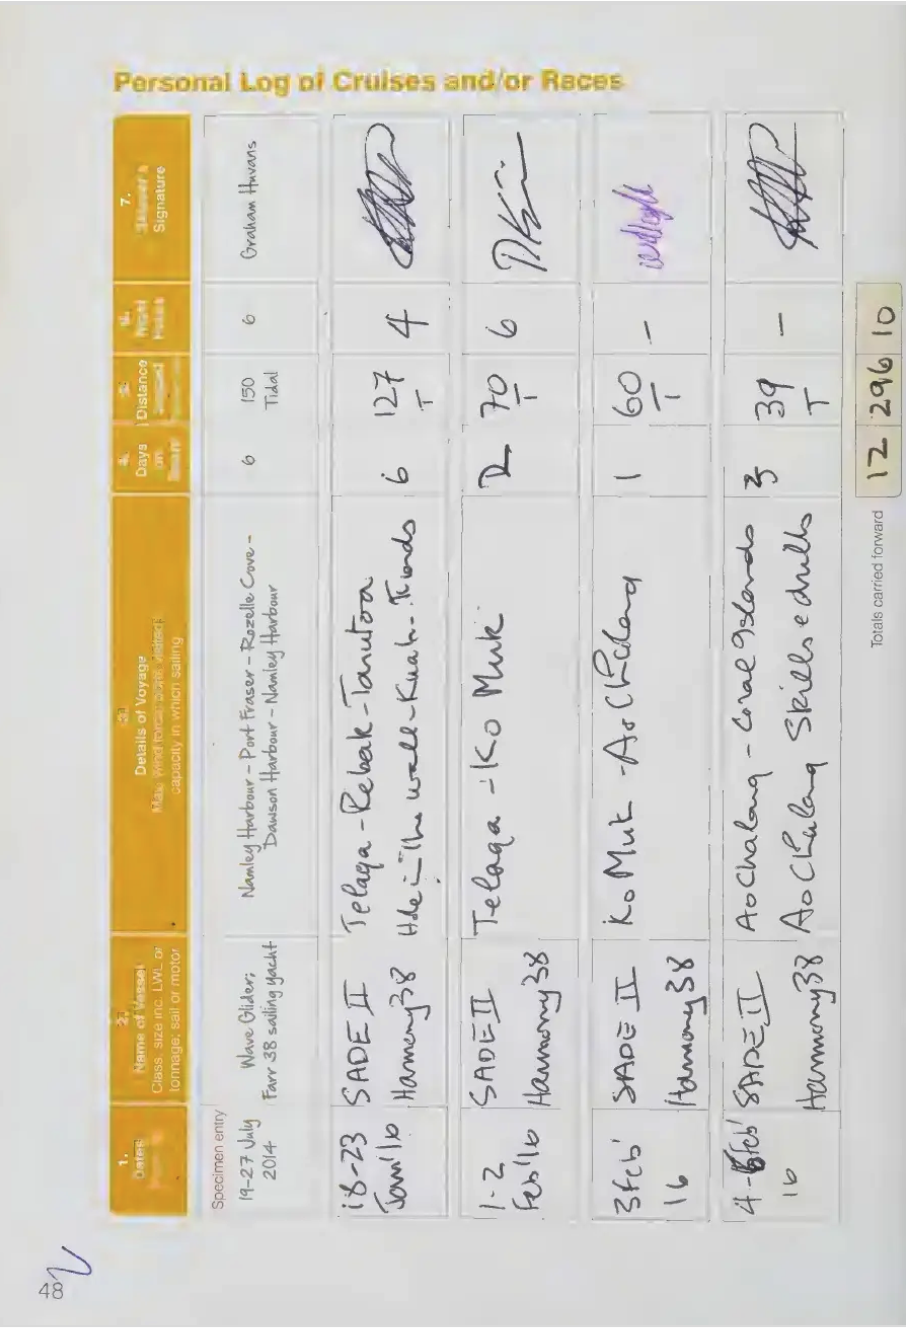 48
Personal Log of Cruises and/or Races
1.
Dates
2.
Name of Vessel
Class, size inc. LWL or
tonnage; sail or motor
3.
Details of Voyage
Max. wind force; ports visited;
capacity in which sailing
4.
Days
on
5.
Distance
6.
Night
7.
Signature
Specimen entry
19-27 July
2014
Wave Glider;
Farr 38 sailing yacht
Namley Harbour - Port Fraser - Rozelle Cove -
Dawson Harbour - Namley Harbour
6
150
Tidal
6
Graham Huvans
18-23
Jan'16
SADE II
Harmony 38
Telaga - Rebak - Tanutoa
Hole in the wall - Kuah -
6
127
T
4
1-2
Feb'16
SADE II
Harmony 38
Telaga - Ko Muk
2
70
T
6
3 Feb'
16
SADE II
Harmony 38
Ko Muk - Ao Chalong
1
60
T
-
Feb'
16
SADE II
Harmony 38
Ao Chalong - Coral Islands
Ao Chalong Skills & drills
3
39
T
-
Totals carried forward
12 296 10